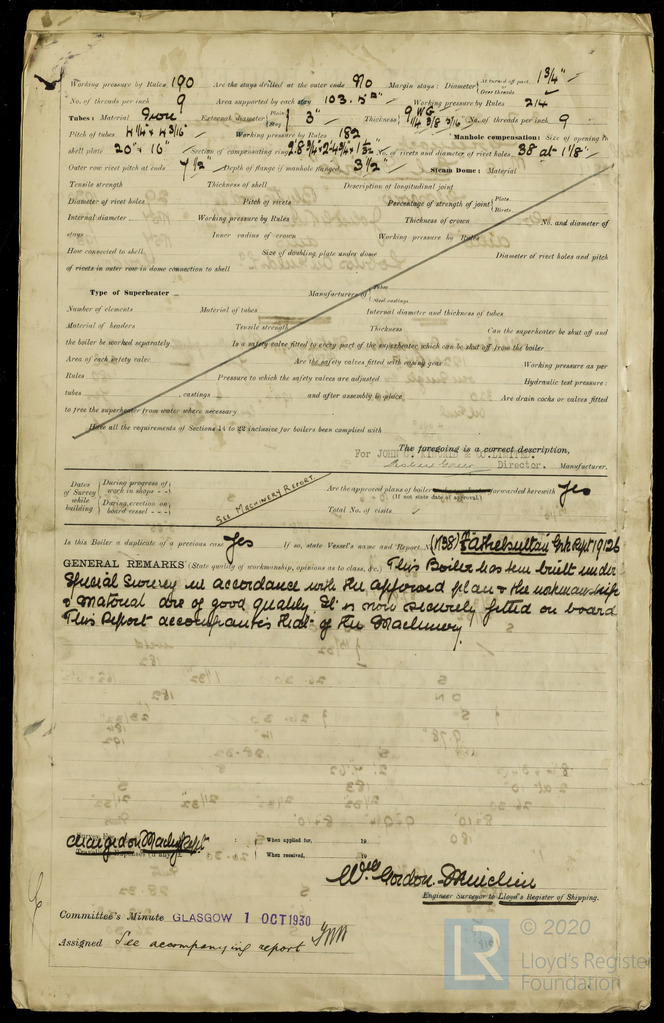 Working pressure by Rules 190 Are the stays drilled at the outer ends No Margin stays: Diameter { At turned off part, or Over threads 1 3/4"
No. of threads per inch 9 Area supported by each stay 103.5 □" Working pressure by Rules 214
Tubes: Material Iron External diameter { Plain Stay 3" Thickness { 9 WG 1/4 3/8 5/16 No. of threads per inch 9
Pitch of tubes 4 1/4" x 4 3/16" Working pressure by Rules 182 Manhole compensation: Size of opening in
shell plate 20" x 16" Section of compensating ring No. of rivets and diameter of rivet holes 38 at 1 1/8"
Outer row rivet pitch at ends 7 1/2" Depth of flange if manhole flanged 3 1/2" Steam Dome: Material
Tensile strength Thickness of shell Description of longitudinal joint
Diameter of rivet holes Pitch of rivets Percentage of strength of joint { Plate Rivets
Internal diameter Working pressure by Rules Thickness of crown No. and diameter of
stays Inner radius of crown Working pressure by Rules
How connected to shell Size of doubling plate under dome Diameter of rivet holes and pitch
of rivets in outer row in dome connection to shell
Type of Superheater Manufacturers of { Tubes Steel castings
Number of elements Material of tubes Internal diameter and thickness of tubes
Material of headers Tensile strength Thickness Can the superheater be shut off and
the boiler be worked separately Is a safety valve fitted to every part of the superheater which can be shut off from the boiler
Area of each safety valve Are the safety valves fitted with easing gear Working pressure as per
Rules Pressure to which the safety valves are adjusted Hydraulic test pressure:
tubes , castings and after assembly in place Are drain cocks or valves fitted
to free the superheater from water where necessary
Have all the requirements of Sections 14 to 22 inclusive for boilers been complied with
The foregoing is a correct description,
For JOHN G. KINCAID & CO. LIMITED.
Director. Manufacturer.
Dates of Survey while building { During progress of work in shops - - During erection on board vessel - - - } SEE MACHINERY REPORT. Are the approved plans of boiler forwarded herewith Yes
(If not state date of approval.)
Total No. of visits
Is this Boiler a duplicate of a previous case Yes If so, state Vessel's name and Report No. (1738) "Athelsultan" Grk Rpt 19126
GENERAL REMARKS (State quality of workmanship, opinions as to class, &c.) This Boiler has been built under
Special Survey in accordance with the approved plan & the workmanship
& material are of good quality. It is now securely fitted on board
This Report accompanies that of the Machinery.
Charged on Machy Rept When applied for, 19
Travelling Expenses (if any) £ When received, 19
Wm Gordon
Engineer Surveyor to Lloyd's Register of Shipping.
Committee's Minute GLASGOW 1 OCT 1930
Assigned See accompanying report
© 2020
LR
Lloyd's Register
Foundation